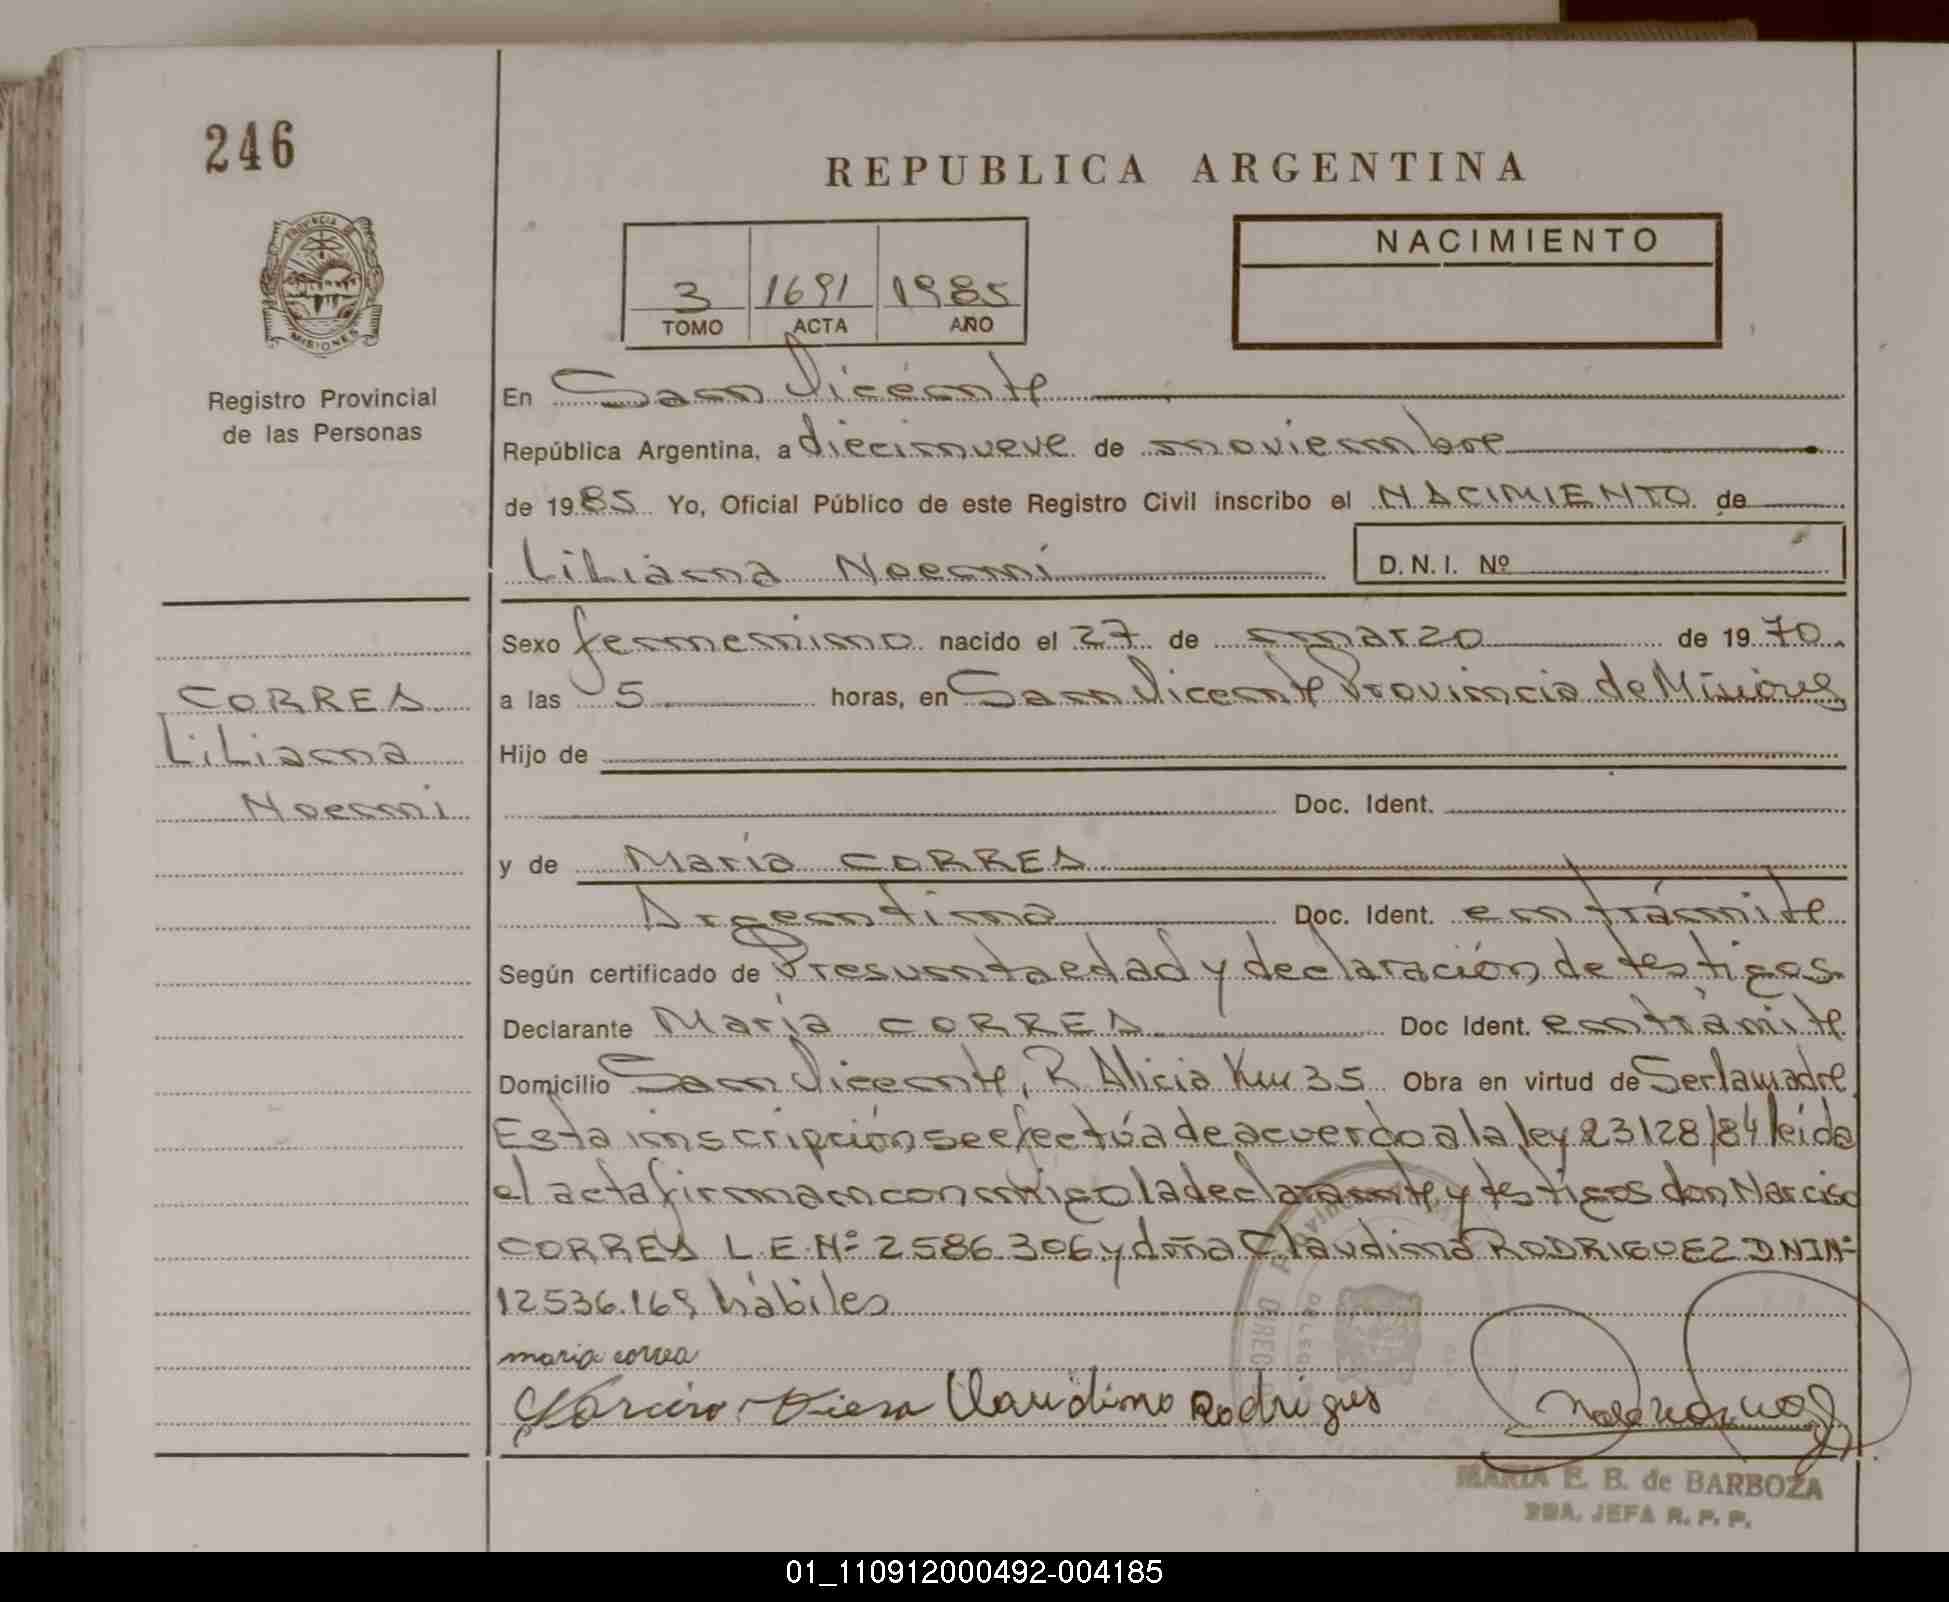 246
REPUBLICA ARGENTINA
PROVINCIA DE
MISIONES
3 1691 1985
TOMO ACTA AÑO
NACIMIENTO
Registro Provincial
de las Personas
En San Vicente
República Argentina, a diecinueve de noviembre
de 1985 Yo, Oficial Público de este Registro Civil inscribo el NACIMIENTO de
Liliana Noemí
D. N. I. Nº
Sexo femenino nacido el 27 de marzo de 1970
CORREA
Liliana
Noemi
a las 5 horas, en San Vicente Provincia de Misiones
Hijo de
Doc. Ident.
y de María CORREA
Argentina Doc. Ident. en trámite
Según certificado de Presunta edad y declaración de testigos
Declarante María CORREA Doc Ident. en trámite
Domicilio San Vicente, R. Alicia Km 35 Obra en virtud de Ser la madre
Esta inscripción se efectúa de acuerdo a la ley 23128/84 leída
el acta firman conmigo la declarante y testigos don Narciso
CORREA L.E.Nº 2586.306 y doña Claudina RODRIGUEZ DNI Nº
12536.169 hábiles
maria correa
Claudino Rodrigues
MARIA E. B. de BARBOZA
JEFA R. P. P.
01_110912000492-004185